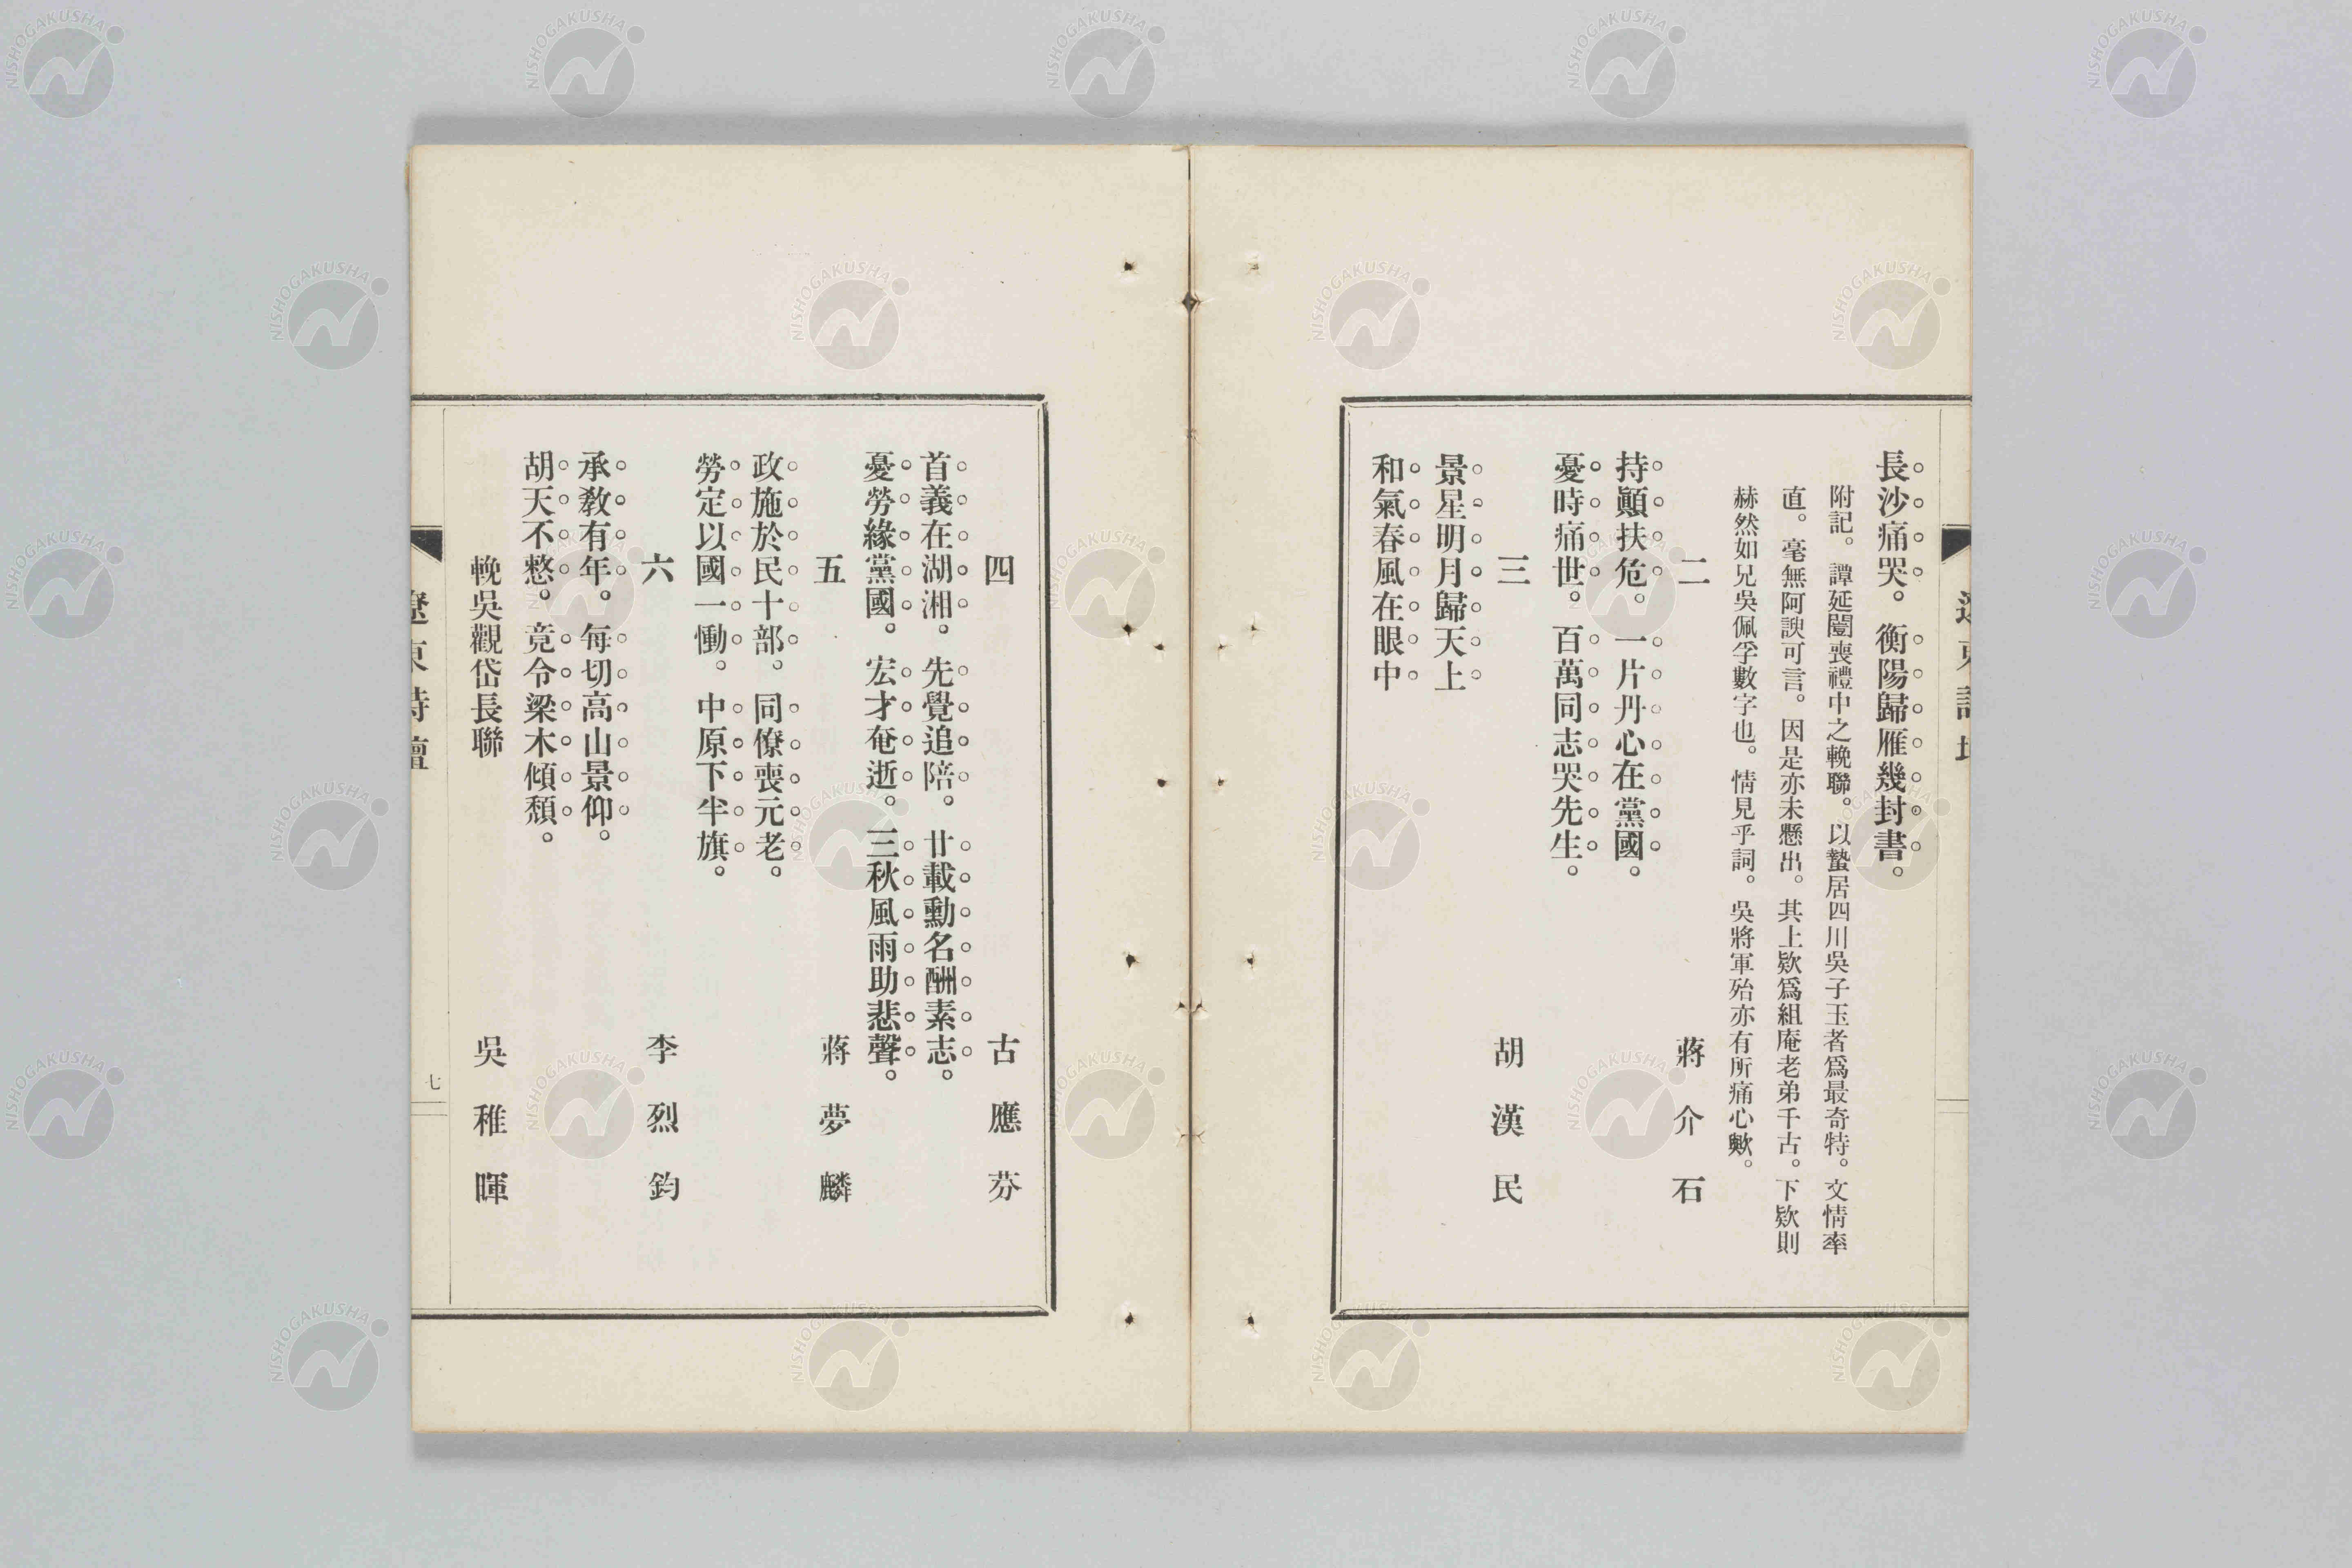 長沙痛哭。衡陽歸雁幾封書。
附記。譚延闓喪禮中之輓聯。以蟄居四川吳子玉者爲最奇特。文情率
直。毫無阿諛可言。因是亦未懸出。其上欵爲組庵老弟千古。下欵則
赫然如兄吳佩孚數字也。情見乎詞。吳將軍殆亦有所痛心歟。
二 蔣介石
持顚扶危。一片丹心在黨國。
憂時痛世。百萬同志哭先生。
三 胡漢民
景星明月歸天上
和氣春風在眼中
四 古應芬
首義在湖湘。先覺追陪。廿載勳名酬素志。
憂勞緣黨國。宏才奄逝。三秋風雨助悲聲。
五 蔣夢麟
政施於民十部。同僚喪元老。
勞定以國一慟。中原下半旗。
六 李烈鈞
承敎有年。每切高山景仰。
胡天不憗。竟令梁木傾頹。
輓吳觀岱長聯 吳稚暉
遼東詩壇
七
NISHOGAKUSHA